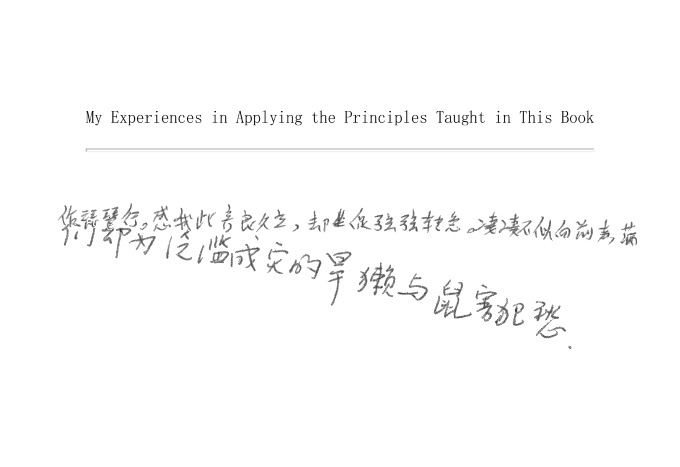 My Experiences in Applying the Principles Taught in This Book
作琵琶行。感我此言良久立，却坐促弦弦转急。凄凄不似向前声，满
们却为泛滥成灾的旱獭与鼠害犯愁.